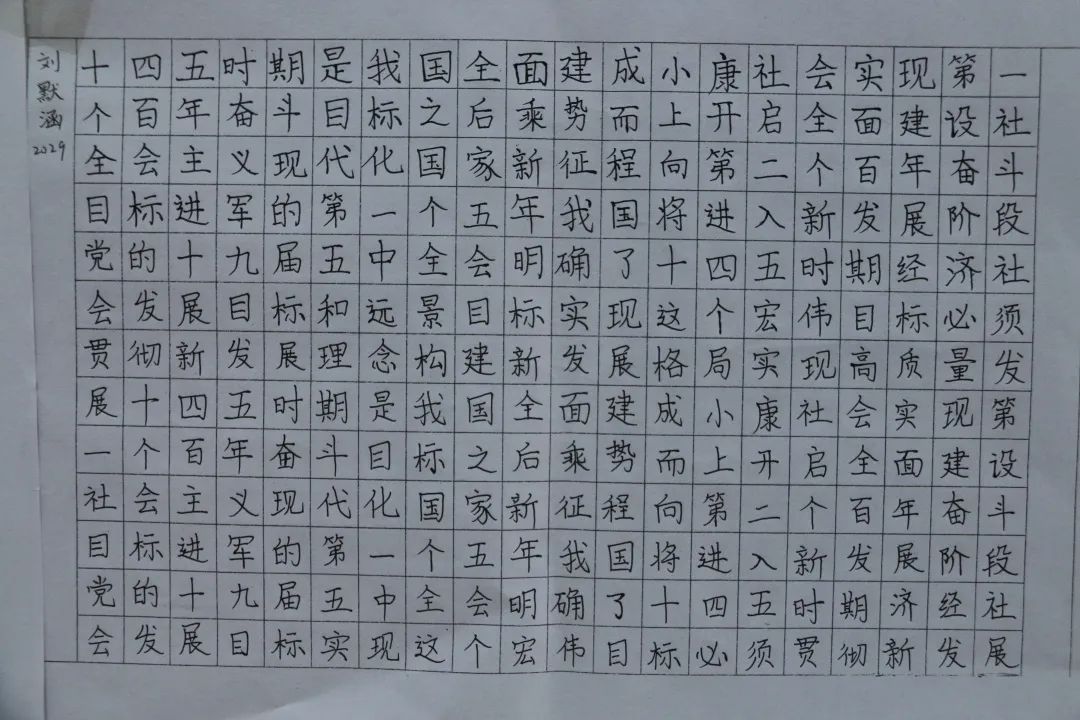 刘默涵
2029
十四五时期是我国全面建成小康社会实现第一
个百年奋斗目标之后乘势而上开启全面建设社
全会主义现代化国家新征程向第二个百年奋斗
目标进军的第一个五年我国将进入新发展阶段
党的十九届五中全会明确了十四五时期经济社
会发展目标和远景目标实现这个宏伟目标必须
贯彻新发展理念构建新发展格局实现高质量发
展十四五时期是我国全面建成小康社会实现第
一个百年奋斗目标之后乘势而上开启全面建设
社会主义现代化国家新征程向第二个百年奋斗
目标进军的第一个五年我国将进入新发展阶段
党的十九届五中全会明确了十四五时期济经社
会发展目标实现这个宏伟目标必须贯彻新发展